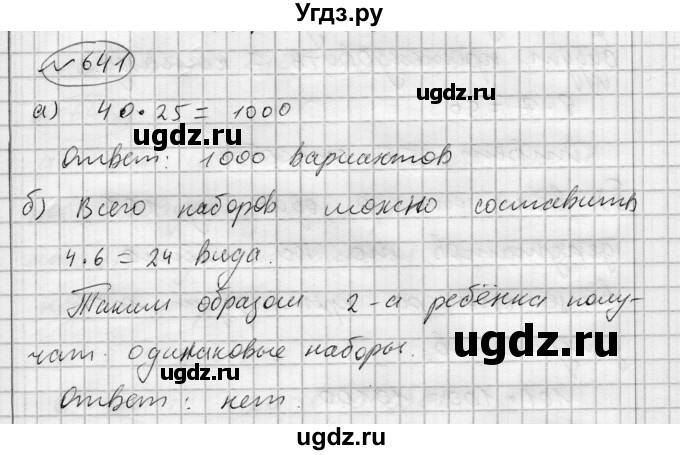 Угдз.ру
№ 641
а) 40·25 = 1000
ugdz.ru
ugdz.ru
Ответ: 1000 вариантов
ugdz.ru
б) Всего наборов можно составить
4·6 = 24 вида.
ugdz.ru
Таким образом 2-а ребёнка полу-
чат одинаковые наборы.
ugdz.ru
ugdz.ru
Ответ: нет.
ugdz.ru